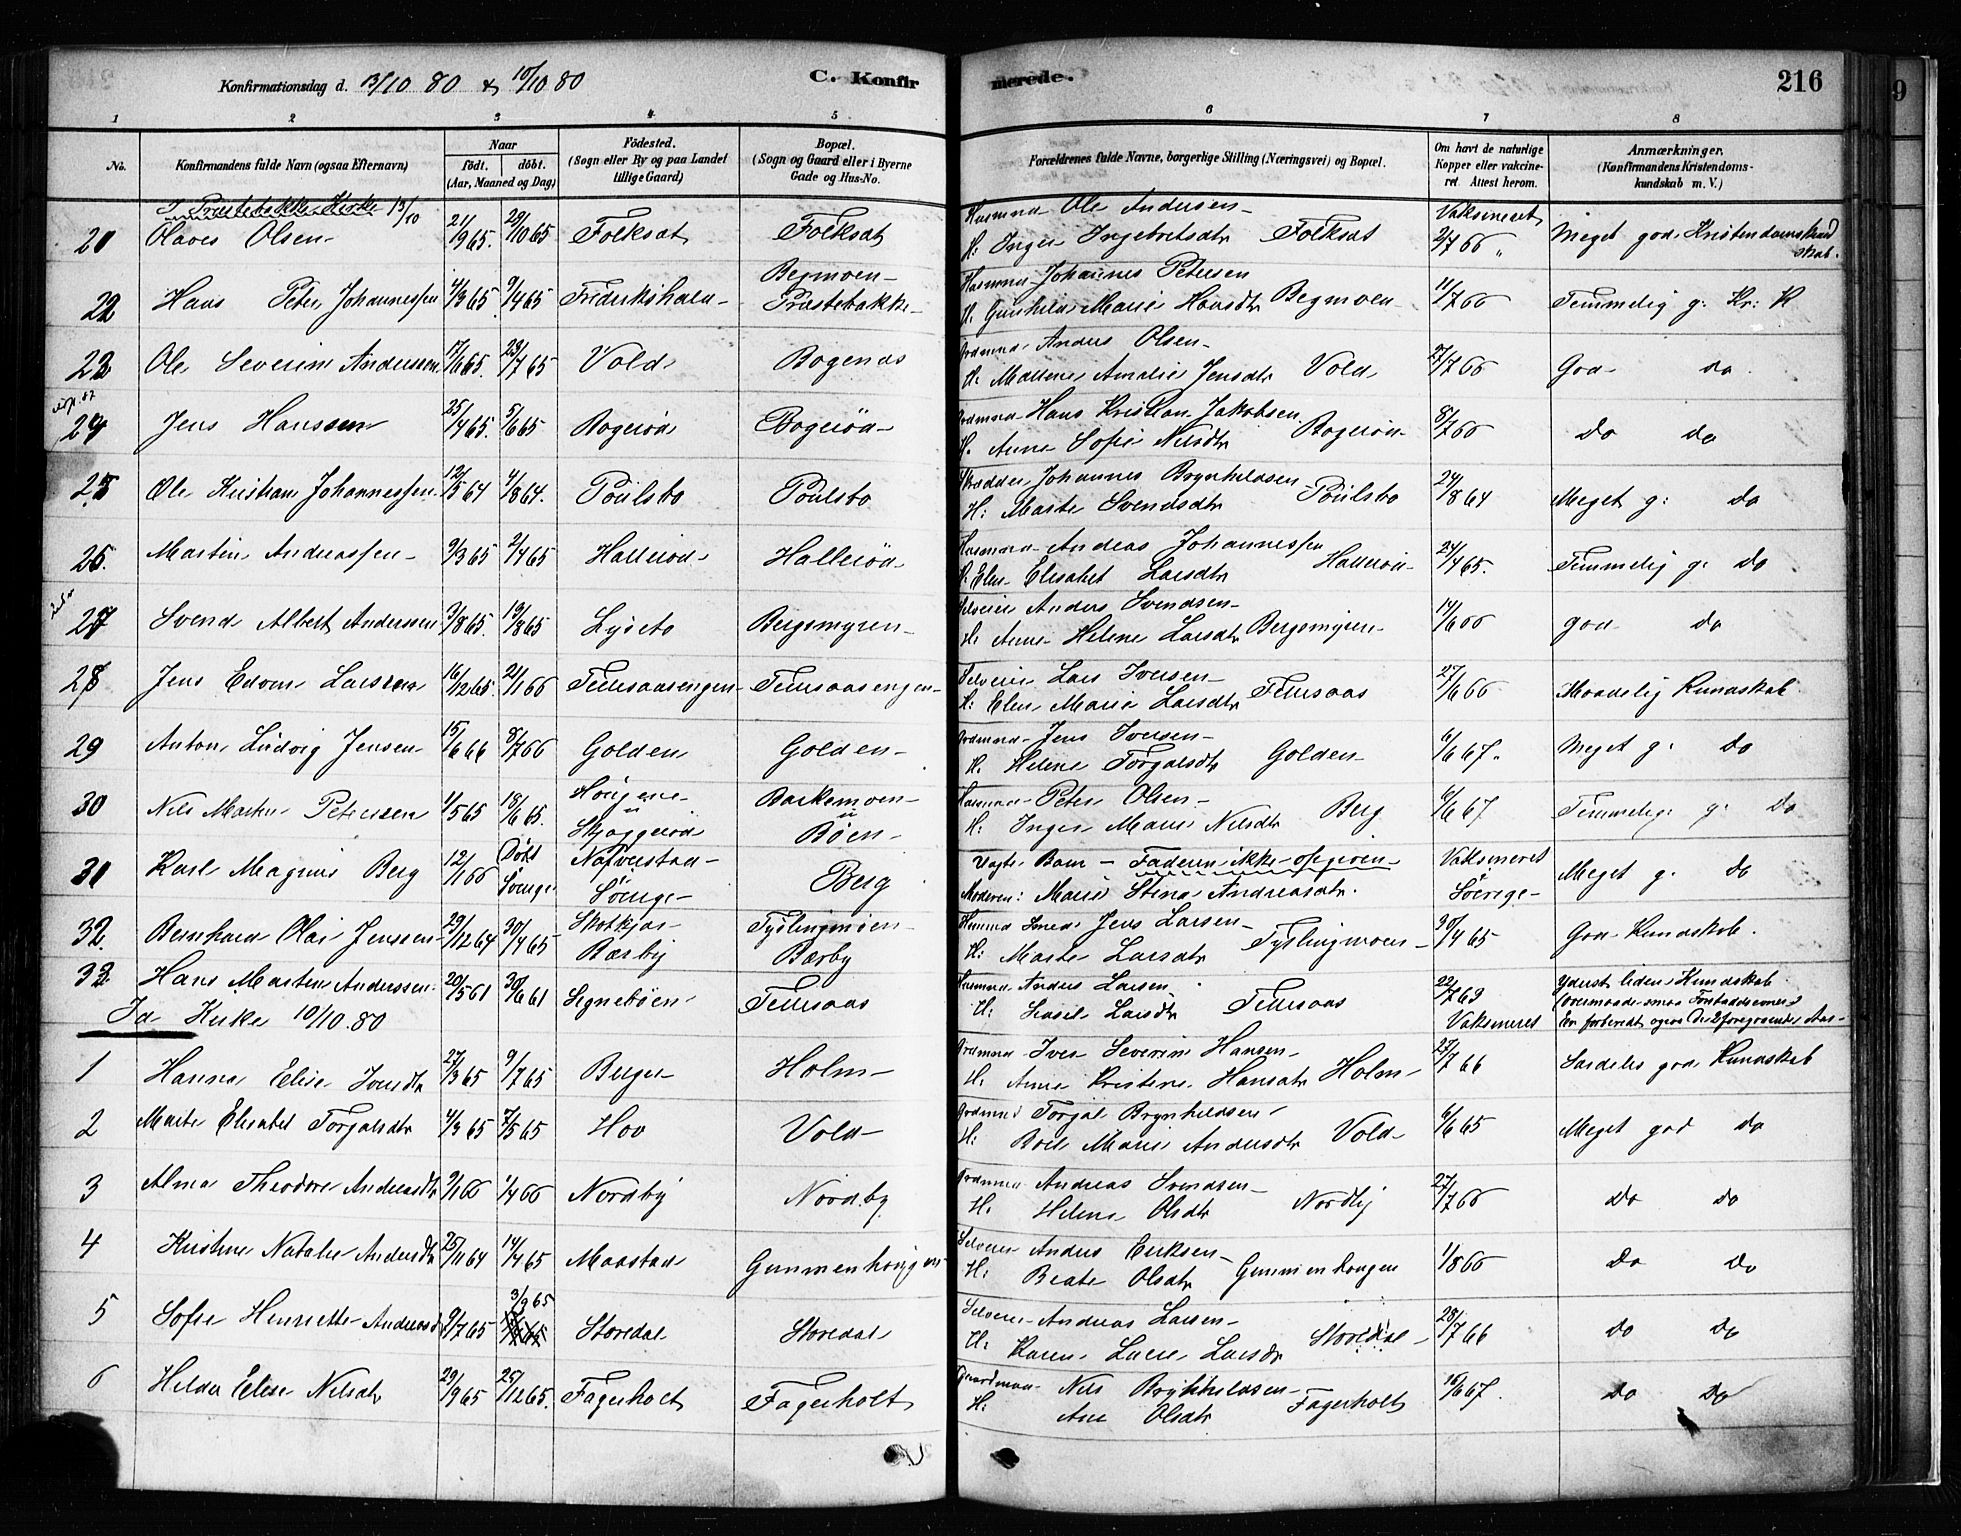 Konfirmationsdag d. 13/10 80 & 10/10 80
C. Konfirmerede.
216
1 2 3 4 5 6 7 8
No.
Konfirmandens fulde Navn (ogsaa Efternavn)
Naar
født. døbt.
(Aar, Maaned og Dag)
Fødested.
(Sogn eller By og paa Landet
tillige Gaard)
Bopæl.
(Sogn og Gaard eller i Byerne
Gade og Hus-No.
Forældrenes fulde Navne, borgerlige Stilling (Næringsvei) og Bopæl.
Om havt de naturlige
Kopper eller vakcine-
ret. Attest herom.
Anmærkninger.
(Konfirmandens Kristendoms-
kundskab m. V.)
I Prestebakke Kirke 13/10
21 Olaves Olsen 21/9 65. 29/10 65 Folksat Folksat Husmand Ole Andersen
H: Inger Ingebretsdtr Folksat Vaksineret 2/7 66 Meget god Kristendomskundskab.
22 Hans Peter Johannessen 4/3 65 9/4 65 Fredrikshald Begmoen Prestebakke Husmand Johannes Petersen
H. Gunhild Marie Hansdtr Begmoen 11/7 66 Temmelig g: Kr: K
23 Ole Severin Anderssen 17/6 65. 23/7 65 Vold Bogenæs Grdmnd Anders Olsen
H: Mallene Amalie Jensdtr Vold 27/7 66 God do
24 Jens Hanssen 25/4 65. 5/6 65 Bogerød Bogerød Grdmnd Hans Kristian Jakobsen
H. Anne Sofie Nilsdtr Bogerød 8/7 66 do do
25 Ole Kristian Johannessen 12/5 64 4/8 64. Poulsbo Poulsbo Skrædder Johannes Brynhildsen
H: Marte Svendsdtr Poulsbo 24/8 64 Meget g: do
26. Martin Andreassen 9/3 65 2/4 65 Hallerød Hallerød Husmnd Andreas Johannessen
H. Elen Elisabet Larsdtr Hallerød 24/4 65. Temmelig g. do
27 Svend Albert Anderssen 3/8 65. 19/8 65 Lyseto Bergsmyren Selveier Anders Svendsen
H: Anne Helene Larsdtr Bergsmyren 14/6 66 god do
28 Jens Edvin Larssen 16/12 65. 21/1 66 Teursaasengen Teursaasengen Selveier Lars Iversen
H: Elen Marie Larsdtr Teursaas 27/6 66 Maadelig Kundskab.
29 Anton Ludvig Jensen 15/6 66 8/7 66 Golden Golden Grdmnd Jens Iversen
H. Helene Torgalsdtr Golden 6/6 67. Meget g: do
30 Nils Martin Peterssen 1/5 65 18/6 65. Hougene u Skjaggerød Bakkemoen u Bøen Husmand Peter Olsen
H: Inger Marie Nilsdtr Berg 6/6 67 Temmelig g. do
31 Karl Magnus Berg 12/1 66 Døbt Sverige Nafverstad Sverige Berg Uægte Barn - Faderen ikke opgiven
Moderen: Marie Stina Andreasdtr. Vaksineret Sverige Meget g. do
32. Bernhard Olai Jenssen 29/12 64 30/4 65 Skotkjær Bærby Tyslingmoen Bærby Jens Larsen
H: Marte Larsdtr Tyslingmoen 30/4 65 God Kundskab.
33. Hans Martin Anderssen 20/5 61 30/6 61 Segnebøen Teursaas Husmnd Anders Larsen
H: Larsdtr Teursaas 22/7 63 Vaksineret Yderst liden Kundskab
Id Kirke 10/10. 80
1 Hanna Elise Iversdtr 27/3 65 9/7 65 Berger Holm Grdmnd Iver Severin Hansen
H. Anne Kristine Hansdtr Holm 27/7 66 Særdeles god Kundskab
2 Marte Elisabet Torgalsdtr 4/3 65 7/5 65 Hov Vold Grdmnd Torgal Brynhildsen
H: Boel Marie Andersdtr Vold 6/6 65 Meget god do
3 Alma Theodore Andreasdtr 9/1 66 1/4 66 Nordby Nordby Grdmnd Andreas Svendsen
H. Helene Olsdtr Nordby 27/7 66 do do
4 Kristine Natalie Andersdtr 25/11 64 14/4 65 Maastad Gummenhougen Selveier Anders Eriksen
H: Beate Olsdtr Gummenhougen 1/8 66 do do
5 Sofie Henriette Andreasd 9/7 65 3/9 65 Storedal Storedal Selveier Andreas Larsen
H: Karen Larsdtr Storedal 28/7 66 do do
6 Hilda Elise Nilsdtr 29/9 65 25/12 65. Fagerholt Fagerholt Gaardmnd Nils Brynhildsen
H: Ane Olsdtr Fagerholt 10/6 67. do do